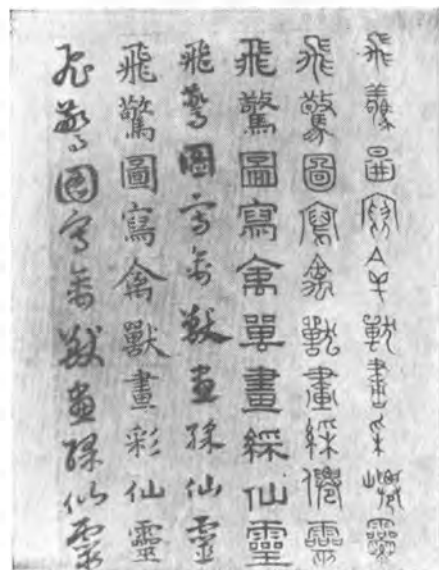 飛驚圖寫禽獸畫采僊靈
飛驚圖寫禽獸畫綵僊靈
飛驚圖寫禽獸畫綵仙靈
飛驚圖寫禽獸畫綵仙靈
飛驚圖寫禽獸畫彩仙靈
飛驚圖寫禽獸畫綵仙靈